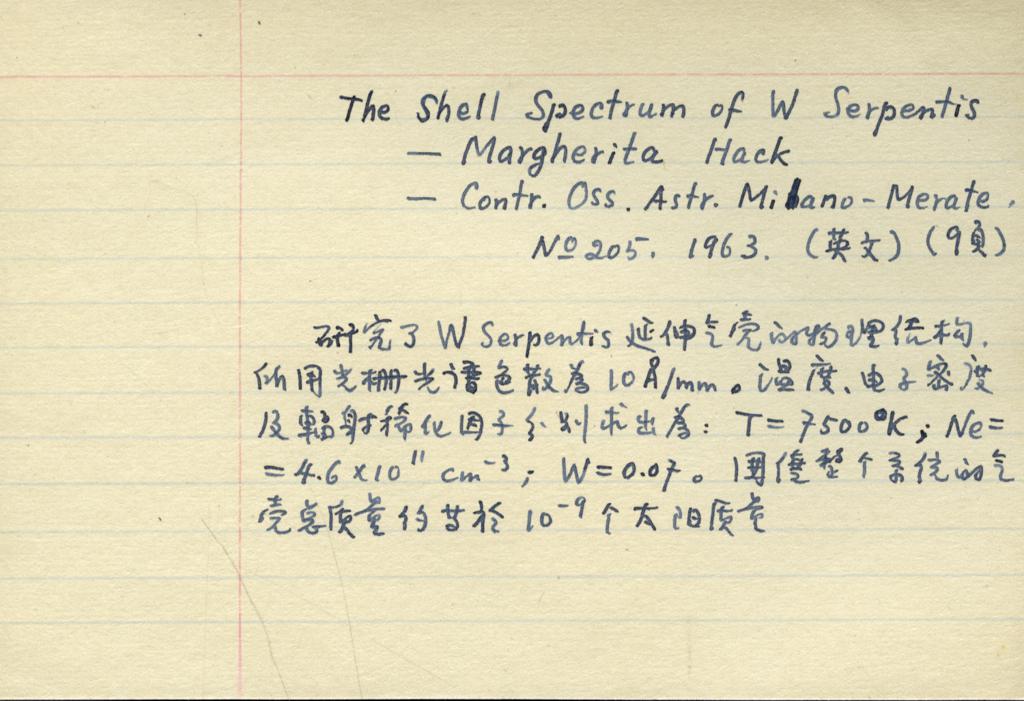 The Shell Spectrum of W Serpentis
— Margherita Hack
— Contr. Oss. Astr. Milano-Merate.
Nº 205. 1963. (英文) (9頁)
研究了 W Serpentis 延伸气壳的物理结构.
所用光栅光谱色散為 10Å/mm。温度、电子密度
及輻射稀化因子分别求出為: T=7500°K; Ne=
=4.6×10¹¹ cm⁻³; W=0.07。围繞整个系统的气
壳总质量约等於 10⁻⁹个太阳质量